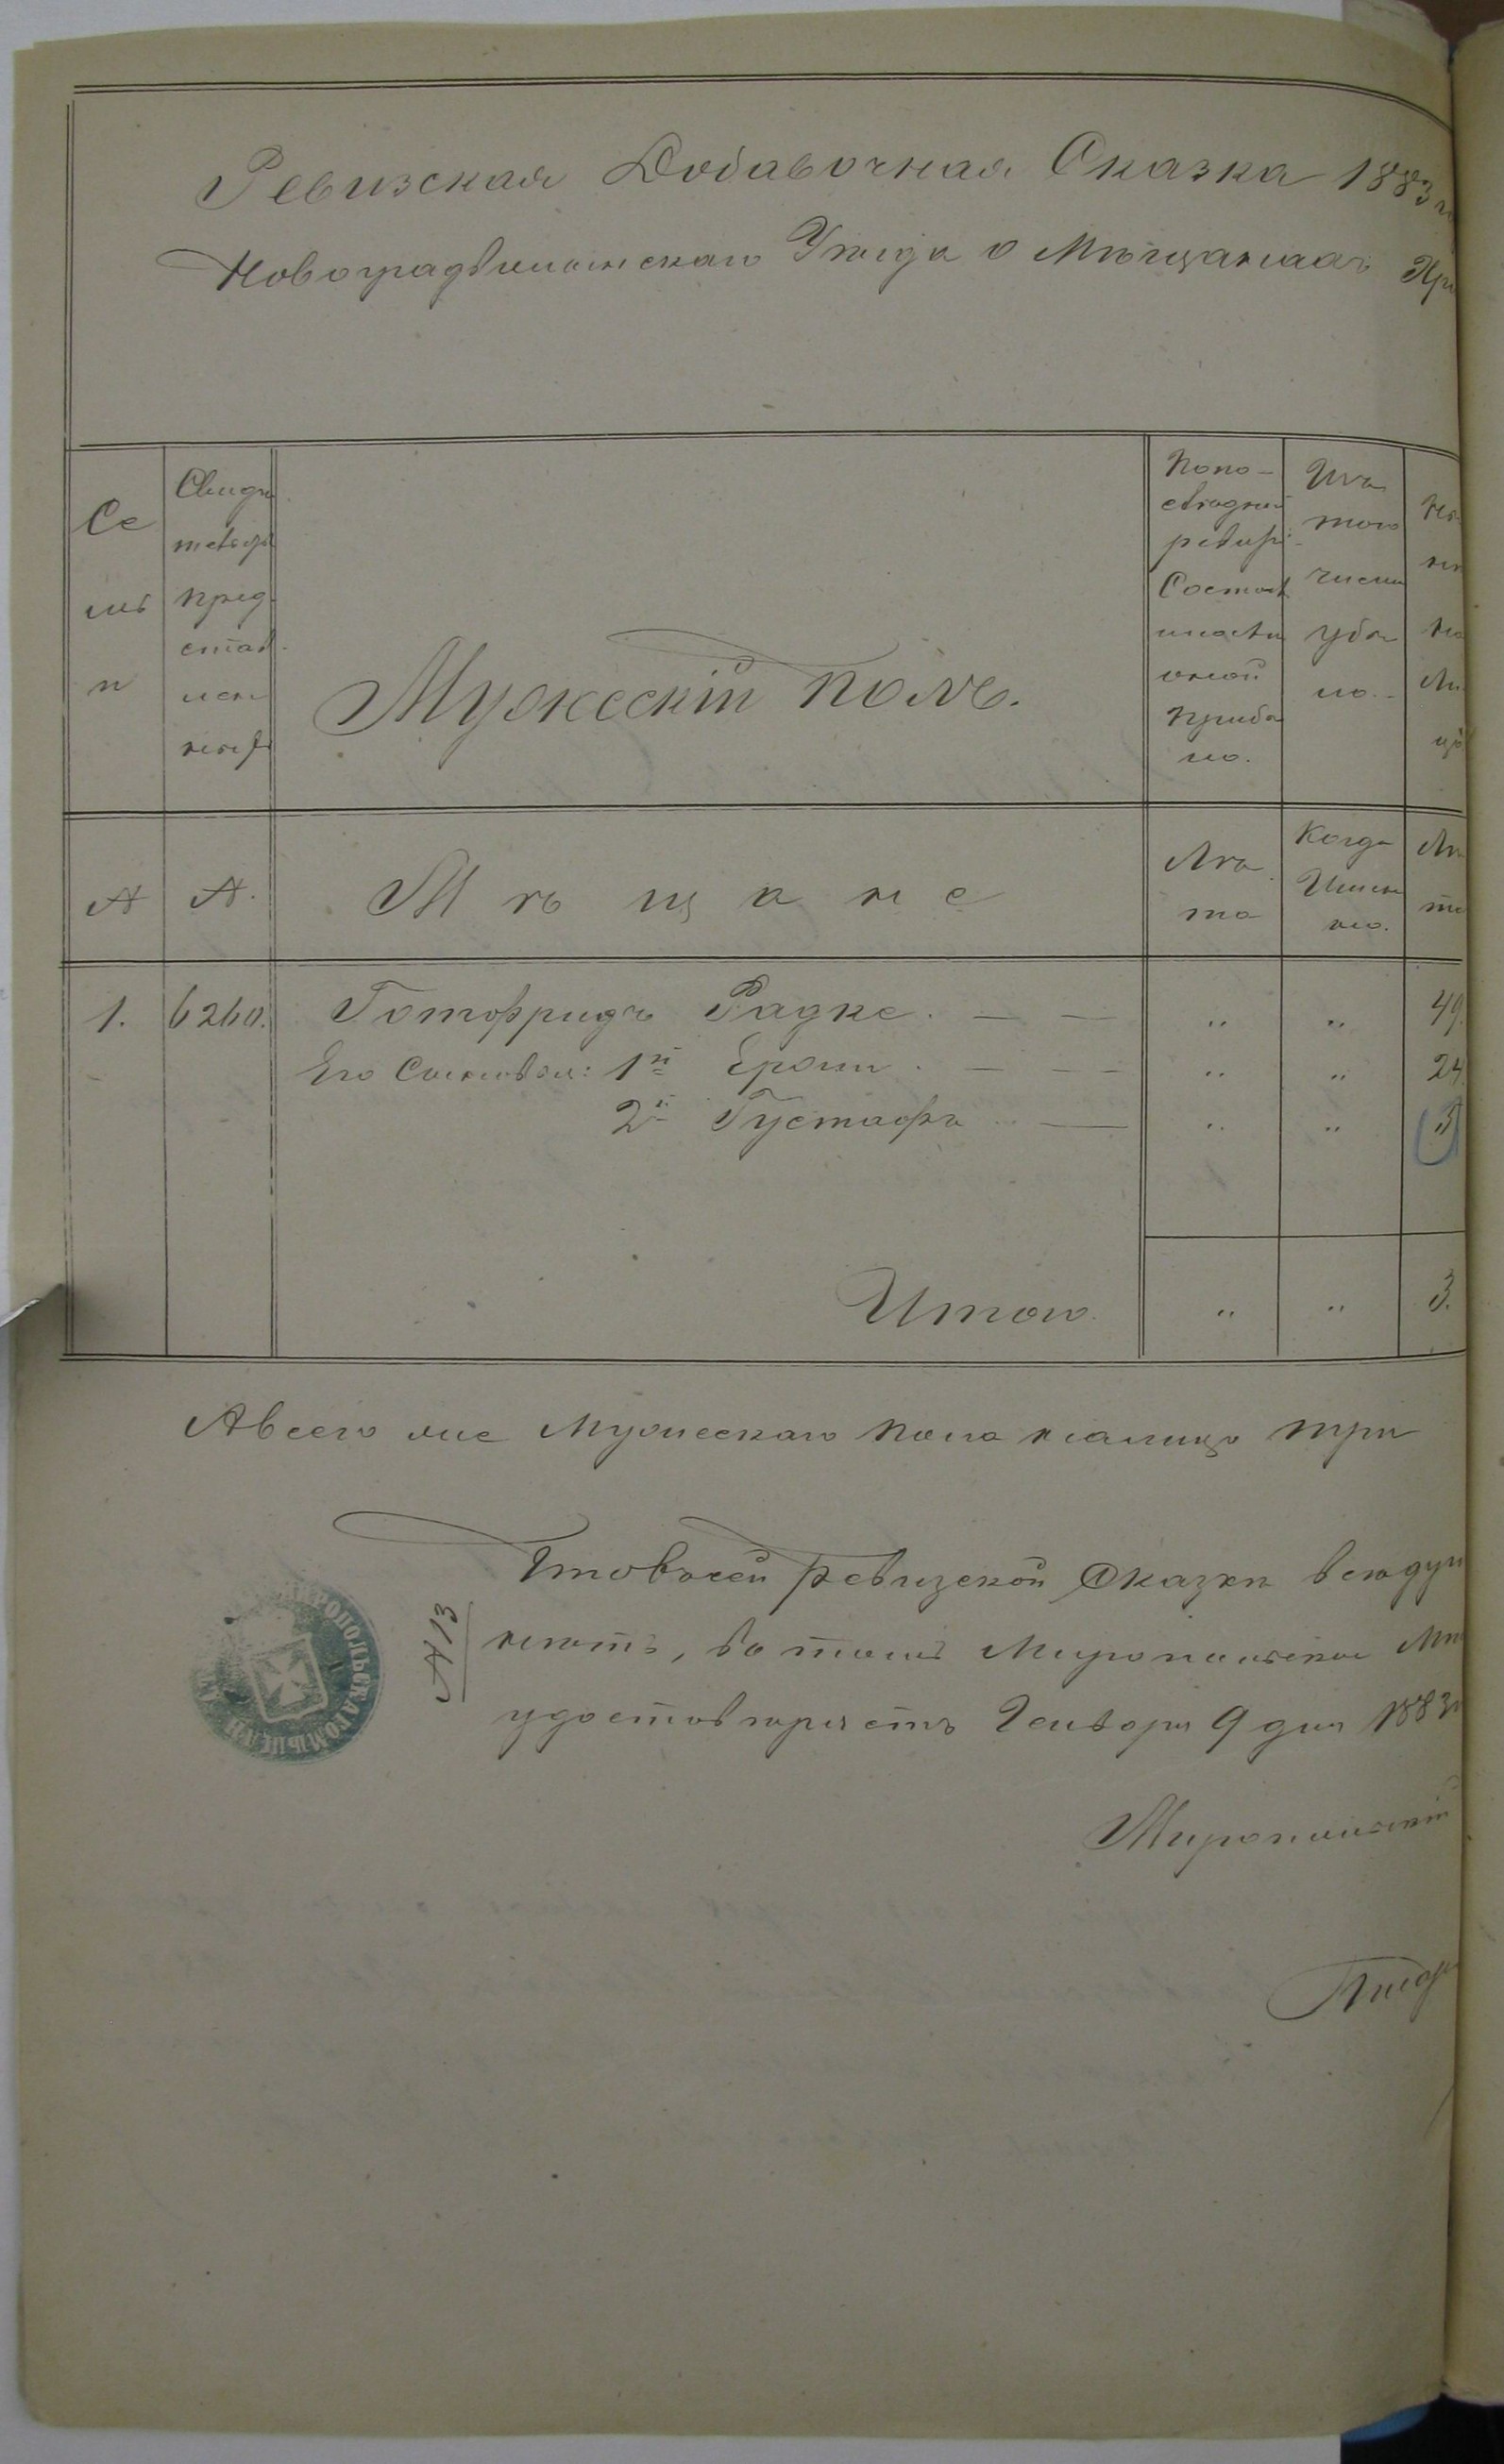 Ревизская Добавочная Сказка 1883
Новоградволынскаго Уѣзда о Мѣщанахъ
Се
мь
и
Свидѣ
тельст
пред
став
лен
ныхъ
Мужескій полъ.
По по-
слѣдней
ревизіи
Состоя
ло и послѣ
оной
прибы
ло.
Изъ
того
числа
убы
ло.
№
№.
Мѣщане
Лѣ
та
Когда
Имен
но.
Лѣ
1. 6260. Готфридъ Радке. — — „ „ 49.
Его Сыновья: 1й Ерош — — „ „ 24.
2й Густафъ — „ „
Итого. „ „ 3.
А всего же Мужескаго пола на лицо три
Что въ сей Ревизской Сказки
, въ томъ Миропольское
удостовѣряетъ Генваря 9 дня 1883
№ 13
Миропольскій